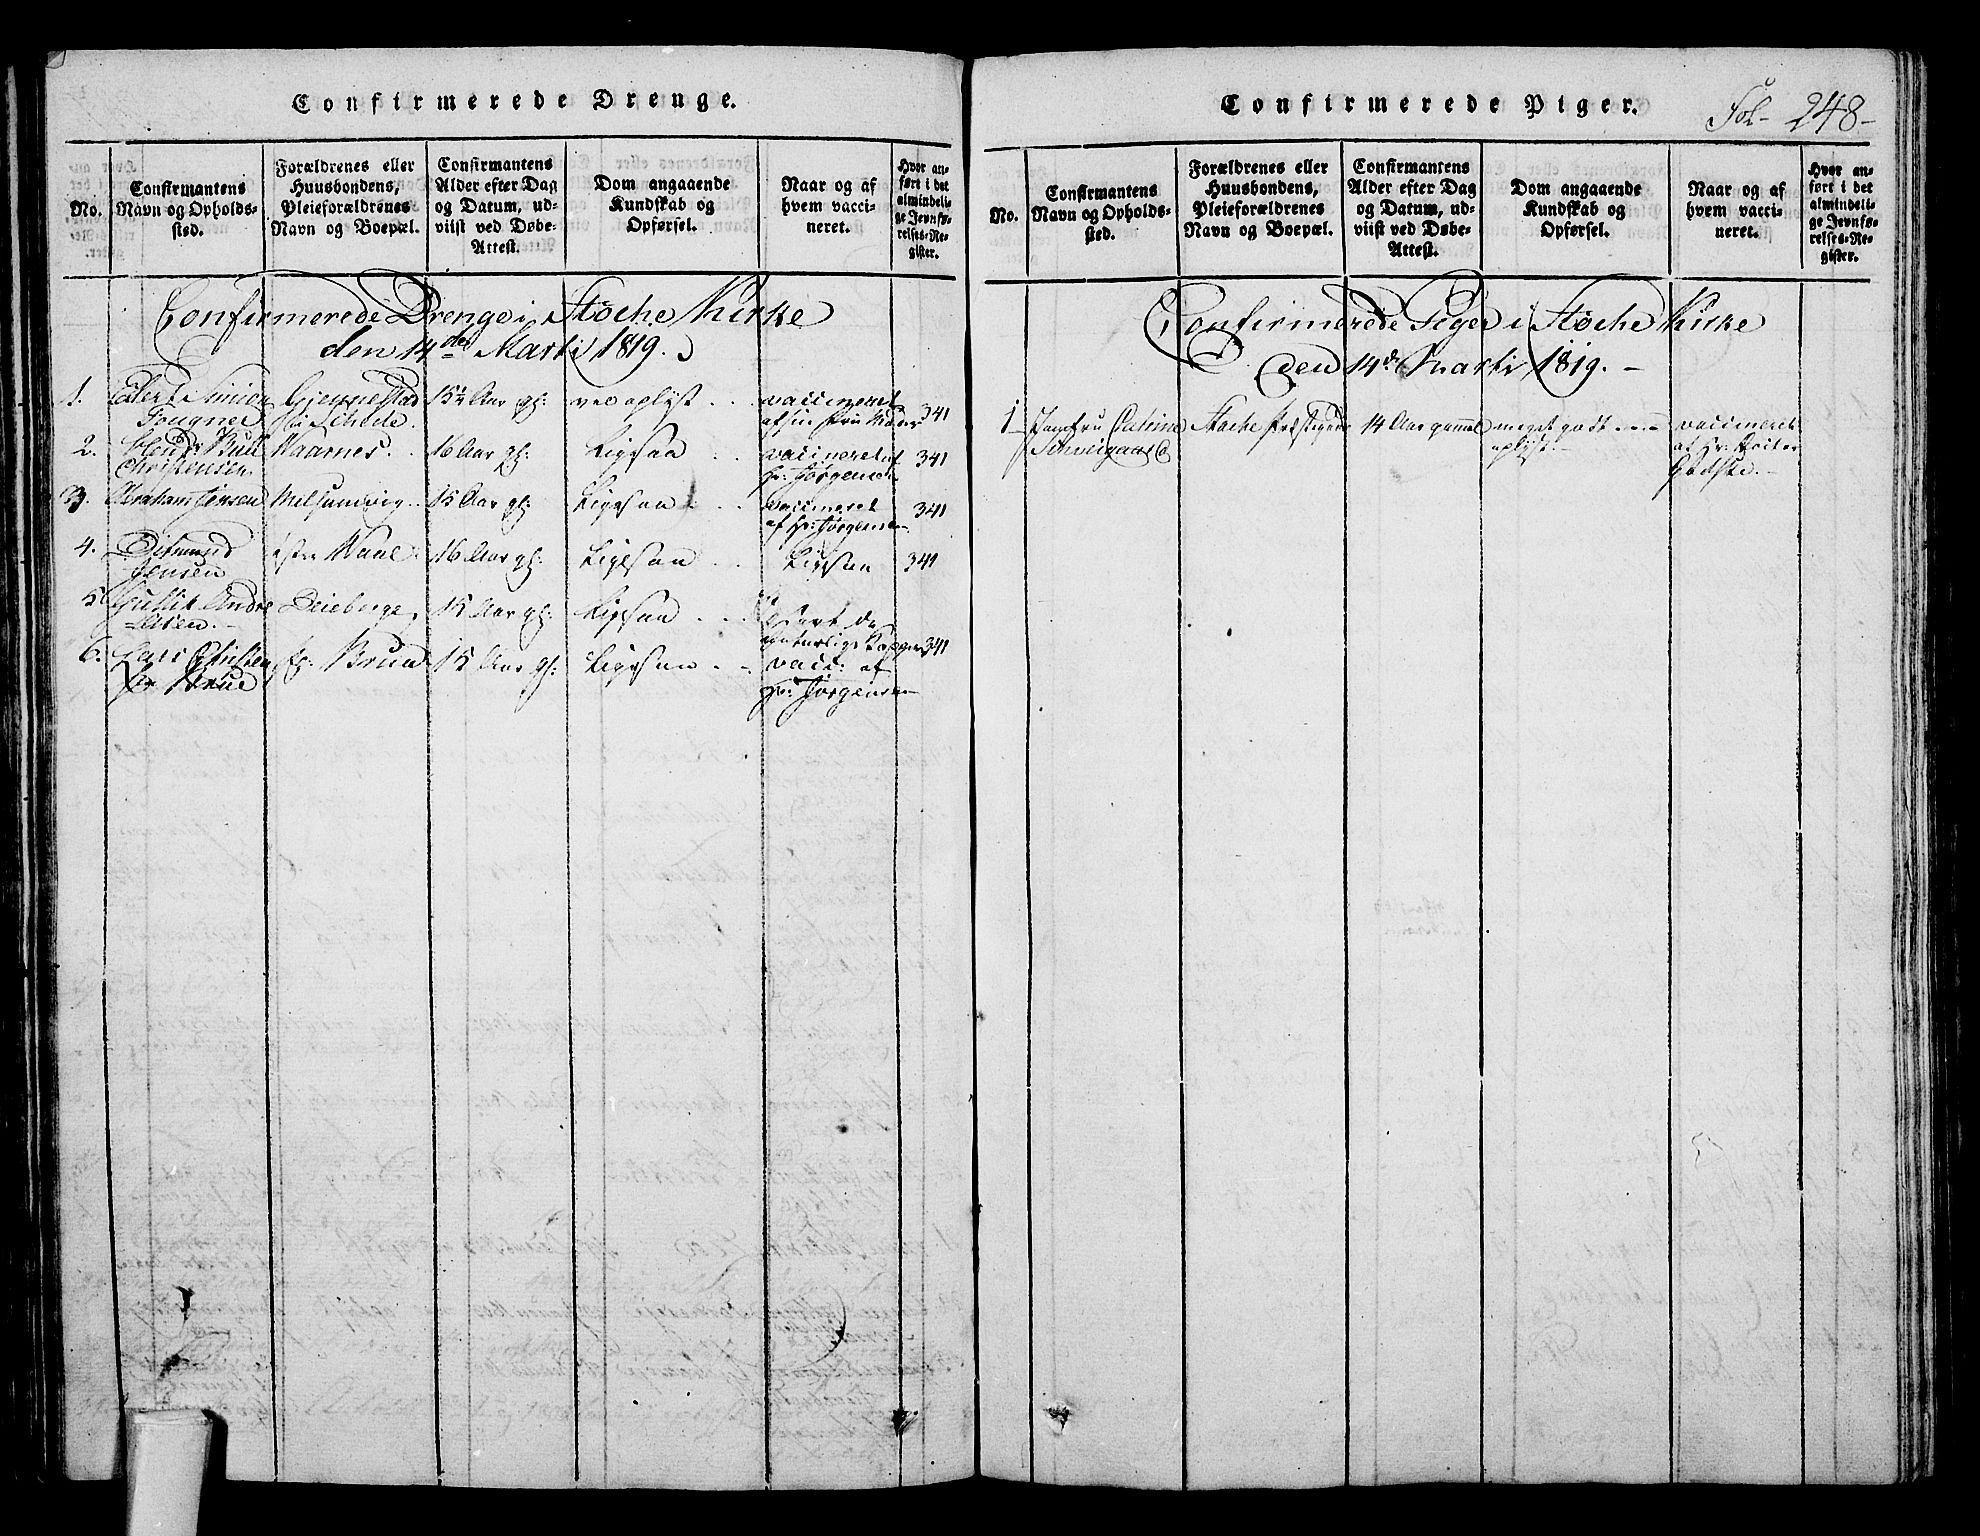 Confirmerede Drenge.
No.
Confirmantens
Navn og Opholds-
sted.
Forældrenes eller
Huusbondens,
Pleieforældrenes
Navn og Boepæl.
Confirmantens
Alder efter Dag
og Datum, ud-
viist ved Døbe-
Attest.
Dom angaaende
Kundskab og
Opførsel.
Naar og af
hvem vacci-
neret.
Hvor an-
ført i det
almindeli-
ge Jevnfø-
relses-Re-
gister.
Confirmerede Drenge i Stoche Kirke
den 14de Marti 1819.
1.
Fougner
Gjennestad
15½ Aar gl:
vel oplyst
vaccineret
341
2.
Christensen
Vaarnes
16 Aar gl:
Ligesaa
vaccineret af
Hr: Jørgensen
341
3.
Abraham Jensen
Melsomvig
15 Aar gl:
Ligesaa
vaccineret
af Hr: Jørgensen
341
4.
Jensen
16 Aar gl:
Ligesaa
Ligesaa
341
5.
Gullik Andre
15 Aar gl:
Ligesaa
havt de
naturlige Kopper
341
6.
Lars Christen
Brun
15 Aar gl:
Ligesaa
vacc: af
Hr: Jørgensen
Confirmerede Piger.
Fol- 248-
No.
Confirmantens
Navn og Opholds-
sted.
Forældrenes eller
Huusbondens,
Pleieforældrenes
Navn og Boepæl.
Confirmantens
Alder efter Dag
og Datum, ud-
viist ved Døbe-
Attest.
Dom angaaende
Kundskab og
Opførsel.
Naar og af
hvem vacci-
neret.
Hvor an-
ført i det
almindeli-
ge Jevnfø-
relses-Re-
gister.
Confirmerede Piger i Stoche Kirke
den 14de Marti 1819.
1
Jomfru Catrine
Schweigaard
Stoche Præstegaard
14 Aar gammel
meget godt
oplyst
vaccineret
af Hr: